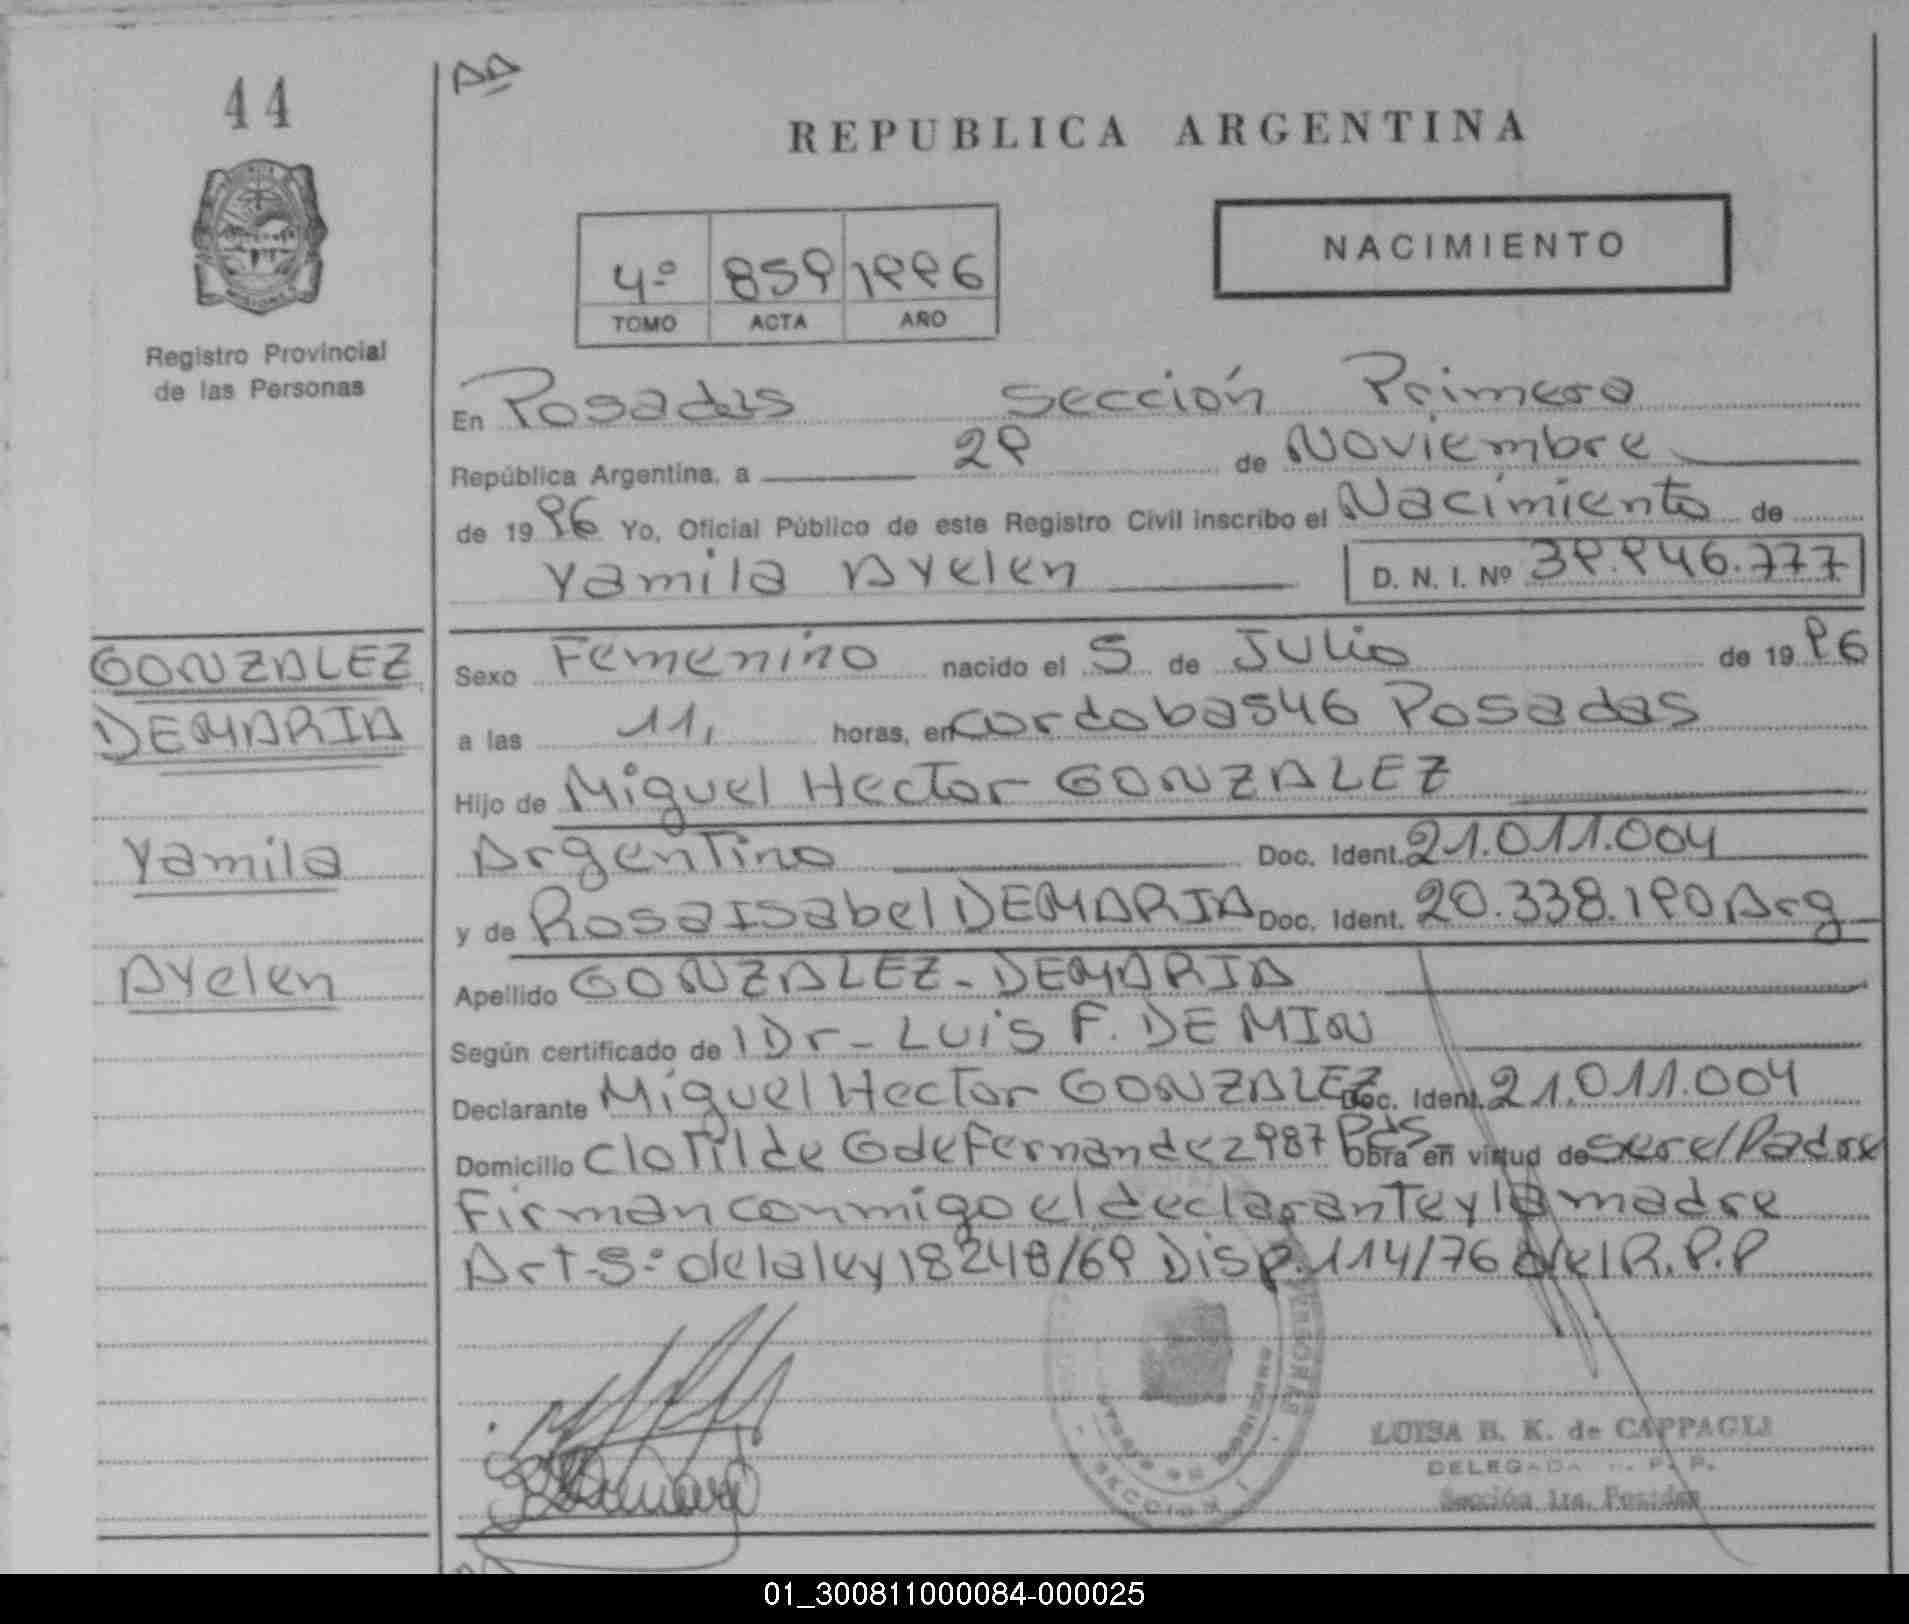 44
REPUBLICA ARGENTINA
NACIMIENTO
4º 859 1996
TOMO ACTA AÑO
Registro Provincial
de las Personas
En Posadas Sección Primera
República Argentina, a 29 de Noviembre
de 1996 Yo, Oficial Público de este Registro Civil inscribo el Nacimiento de
Yamila Ayelen D. N. I. Nº 39.946.777
GONZALEZ
DEMARIA
Yamila
Ayelen
Sexo Femenino nacido el 5 de Julio de 1996
a las 11, horas, en Cordoba 546 Posadas
Hijo de Miguel Hector GONZALEZ
Argentino Doc. Ident. 21.011.004
y de Rosa Isabel DEMARIA Doc. Ident. 20.338.190 Arg
Apellido GONZALEZ - DEMARIA
Según certificado de l Dr - Luis F. DEMIN
Declarante Miguel Hector GONZALEZ Doc. Ident. 21.011.004
Domicilio Clotilde G de Fernandez 2987 Pds Obra en virtud de ser el Padre
Firman conmigo el declarante y la madre
Art-5º de la ley 18248/69 Disp. 114/76 del R.P.P
LUISA B. K. de CAPPAGLI
DELEGADA P. P.
Sección 1ra. Posadas
SECCION 1
01_300811000084-000025